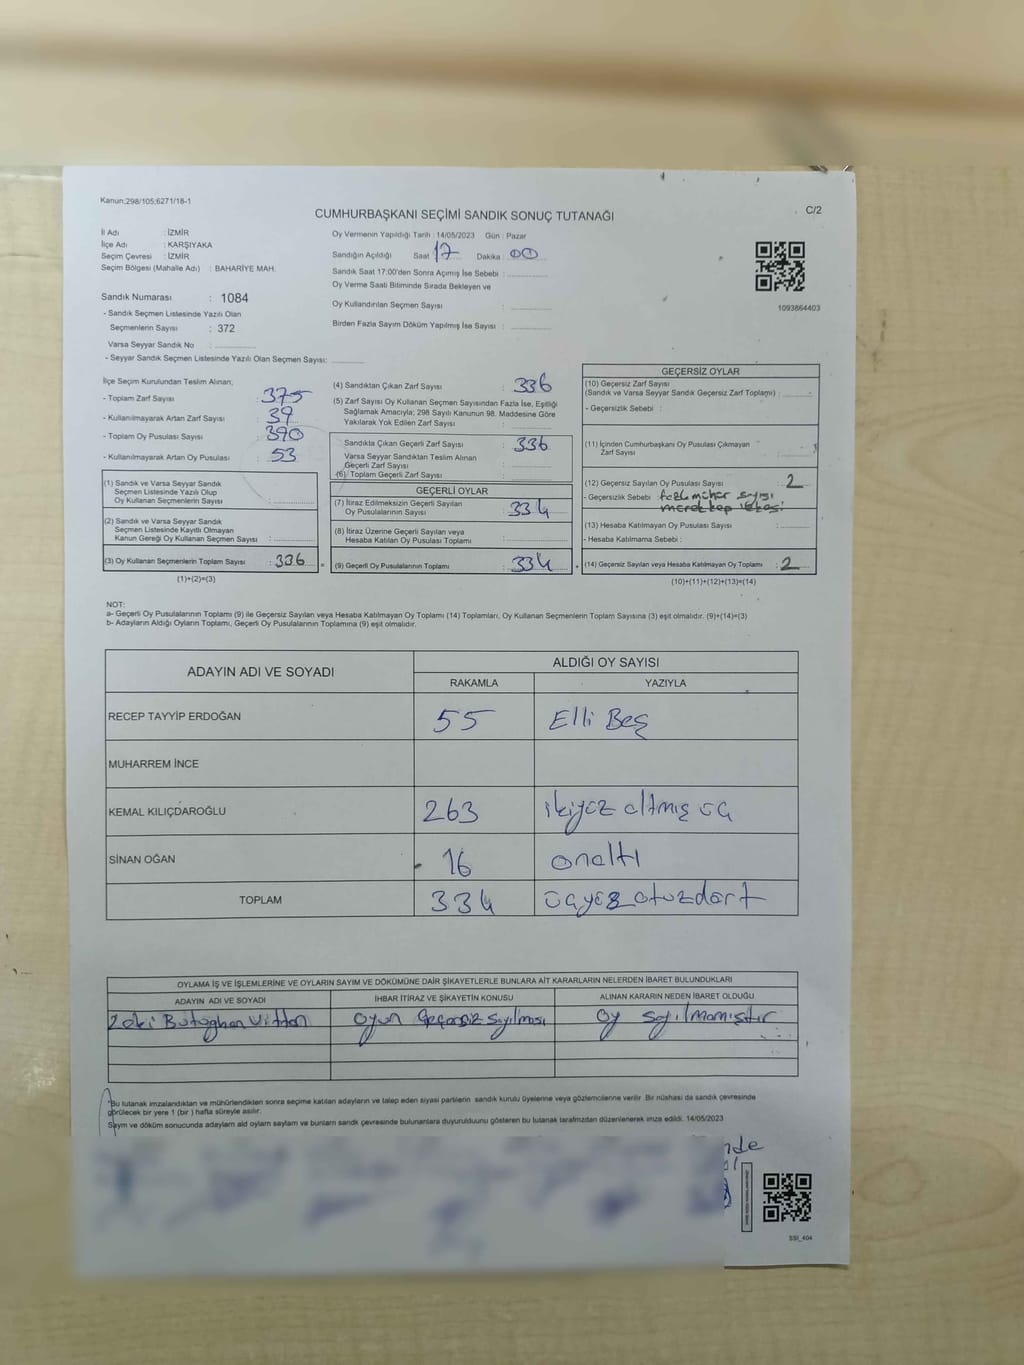 Kanun;298/105;6271/18-1
C/2
CUMHURBAŞKANI SEÇİMİ SANDIK SONUÇ TUTANAĞI
İl Adı : İZMİR
İlçe Adı : KARŞIYAKA
Seçim Çevresi : İZMİR
Seçim Bölgesi (Mahalle Adı) : BAHARİYE MAH.
Sandık Numarası : 1084
- Sandık Seçmen Listesinde Yazılı Olan
Seçmenlerin Sayısı : 372
Varsa Seyyar Sandık No :
- Seyyar Sandık Seçmen Listesinde Yazılı Olan Seçmen Sayısı:
Oy Vermenin Yapıldığı Tarih : 14/05/2023 Gün : Pazar
Sandığın Açıldığı Saat 17 Dakika 00
Sandık Saat 17:00'den Sonra Açımış İse Sebebi :
Oy Verme Saati Bitiminde Sırada Bekleyen ve
Oy Kullandırılan Seçmen Sayısı :
Birden Fazla Sayım Döküm Yapılmış İse Sayısı :
1093864403
İlçe Seçim Kurulundan Teslim Alınan;
- Toplam Zarf Sayısı : 375
- Kullanılmayarak Artan Zarf Sayısı : 39
- Toplam Oy Pusulası Sayısı : 390
- Kullanılmayarak Artan Oy Pusulası : 53
(1) Sandık ve Varsa Seyyar Sandık
Seçmen Listesinde Yazılı Olup
Oy Kullanan Seçmenlerin Sayısı :
(2) Sandık ve Varsa Seyyar Sandık
Seçmen Listesinde Kayıtlı Olmayan
Kanun Gereği Oy Kullanan Seçmen Sayısı :
(3) Oy Kullanan Seçmenlerin Toplam Sayısı : 336
(1)+(2)=(3)
(4) Sandıktan Çıkan Zarf Sayısı : 336
(5) Zarf Sayısı Oy Kullanan Seçmen Sayısından Fazla İse, Eşitliği
Sağlamak Amacıyla; 298 Sayılı Kanunun 98. Maddesine Göre
Yakılarak Yok Edilen Zarf Sayısı :
Sandıkta Çıkan Geçerli Zarf Sayısı : 336
Varsa Seyyar Sandıktan Teslim Alınan
Geçerli Zarf Sayısı :
(6) Toplam Geçerli Zarf Sayısı :
GEÇERLİ OYLAR
(7) İtiraz Edilmeksizin Geçerli Sayılan
Oy Pusulalarının Sayısı : 334
(8) İtiraz Üzerine Geçerli Sayılan veya
Hesaba Katılan Oy Pusulası Toplamı :
(9) Geçerli Oy Pusulalarının Toplamı : 334
GEÇERSİZ OYLAR
(10) Geçersiz Zarf Sayısı
(Sandık ve Varsa Seyyar Sandık Geçersiz Zarf Toplamı) :
- Geçersizlik Sebebi :
(11) İçinden Cumhurbaşkanı Oy Pusulası Çıkmayan
Zarf Sayısı :
(12) Geçersiz Sayılan Oy Pusulası Sayısı : 2
- Geçersizlik Sebebi : fazla mühür sayısı
mürekkep lekesi
(13) Hesaba Katılmayan Oy Pusulası Sayısı :
- Hesaba Katılmama Sebebi :
(14) Geçersiz Sayılan veya Hesaba Katılmayan Oy Toplamı : 2
(10)+(11)+(12)+(13)=(14)
NOT:
a- Geçerli Oy Pusulalarının Toplamı (9) ile Geçersiz Sayılan veya Hesaba Katılmayan Oy Toplamı (14) Toplamları, Oy Kullanan Seçmenlerin Toplam Sayısına (3) eşit olmalıdır. (9)+(14)=(3)
b- Adayların Aldığı Oyların Toplamı, Geçerli Oy Pusulalarının Toplamına (9) eşit olmalıdır.
ADAYIN ADI VE SOYADI
ALDIĞI OY SAYISI
RAKAMLA YAZIYLA
RECEP TAYYİP ERDOĞAN 55 Elli Beş
MUHARREM İNCE
KEMAL KILIÇDAROĞLU 263 ikiyüz altmış üç
SİNAN OĞAN 16 onaltı
TOPLAM 334 üçyüzotuzdört
OYLAMA İŞ VE İŞLEMLERİNE VE OYLARIN SAYIM VE DÖKÜMÜNE DAİR ŞİKAYETLERLE BUNLARA AİT KARARLARIN NELERDEN İBARET BULUNDUKLARI
ADAYIN ADI VE SOYADI İHBAR İTİRAZ VE ŞİKAYETİN KONUSU ALINAN KARARIN NEDEN İBARET OLDUĞU
Zeki oyun Geçersiz Sayılması oy sayılmamıştır
Bu tutanak imzalandıktan ve mühürlendikten sonra seçime katılan adayların ve talep eden siyasi partilerin sandık kurulu üyelerine veya gözlemcilerine verilir. Bir nüshası da sandık çevresinde
görülecek bir yere 1 (bir ) hafta süreyle asılır.
Sayım ve döküm sonucunda adayların ald oyların sayılam ve bunların sandık çevresinde bulunanlara duyurulduunu gösteren bu tutanak tarafımızdan düzenlenerek imza edildi. 14/05/2023
SSI_404